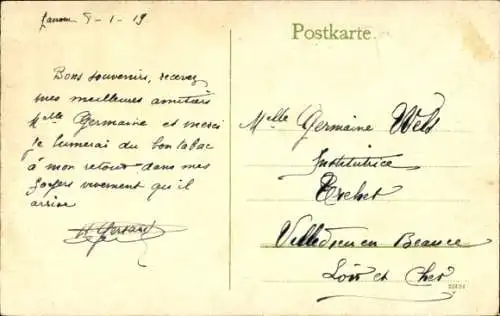 8-1-19
Postkarte.
Bons souvenirs, recevez
mes meilleures amitiés
Melle Germaine et merci
je fumerai du bon tabac
à mon retour dans mes
foyers vivement qu'il
arrive
Melle Germaine Wels
Institutrice
Villedieu en Beauce
Loir et Cher